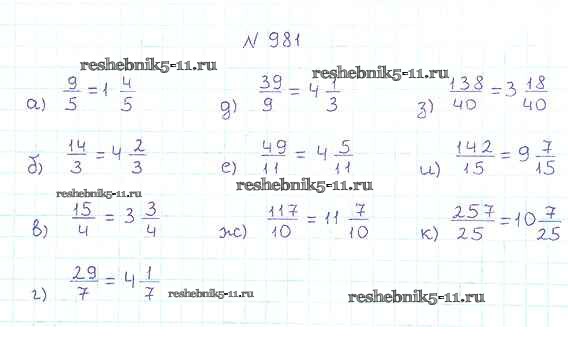 N 981
reshebnik5-11.ru
reshebnik5-11.ru
а) 9/5 = 1 4/5
д) 39/9 = 4 1/3
з) 138/40 = 3 18/40
б) 14/3 = 4 2/3
е) 49/11 = 4 5/11
и) 142/15 = 9 7/15
reshebnik5-11.ru
reshebnik5-11.ru
в) 15/4 = 3 3/4
ж) 117/10 = 11 7/10
к) 257/25 = 10 7/25
г) 29/7 = 4 1/7
reshebnik5-11.ru
reshebnik5-11.ru